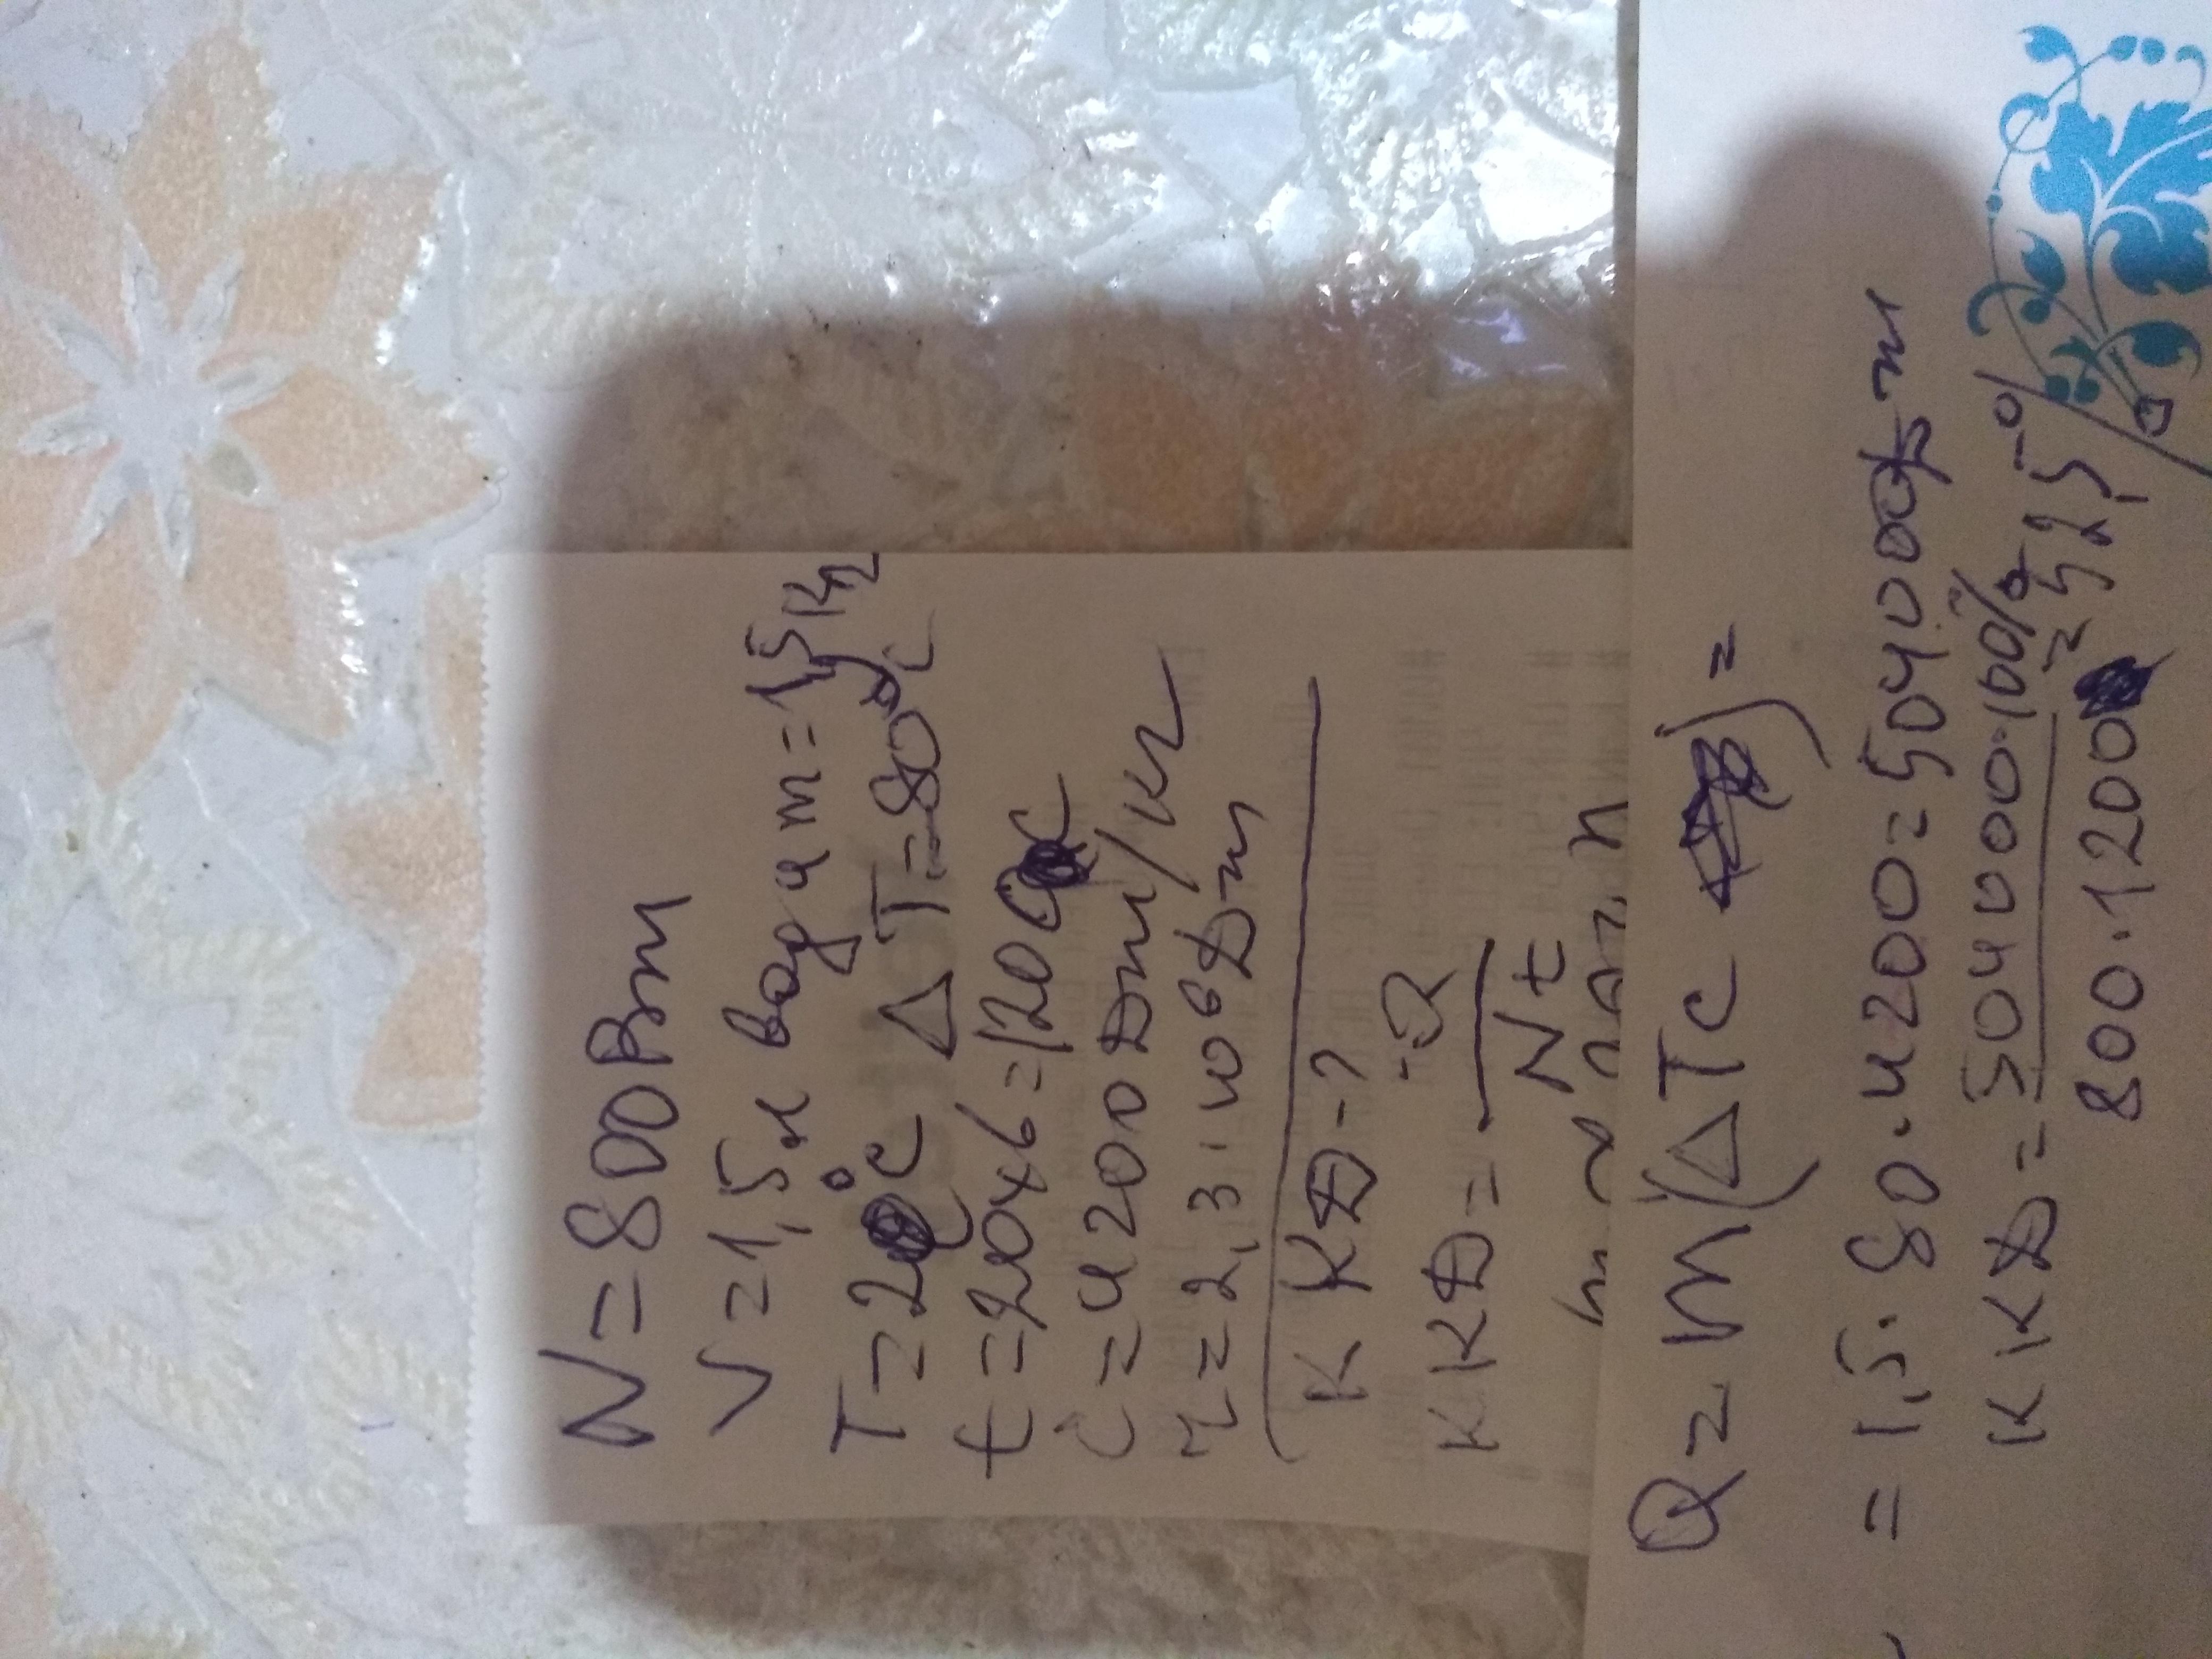 N = 800 Вт
V = 1,5 л воды m = 1,5 кг
T = 20°C ΔT = 80°C
t = 20 хв = 1200 с
C = 4200 Дж/кг
= 2,3·10⁶ Дж
ККД - ?
ККД = Q
Nt
Q = m(ΔTc) =
= 1,5·80·4200 = 504000 Дж
ККД = 504000·100% = 52,5%
800·1200